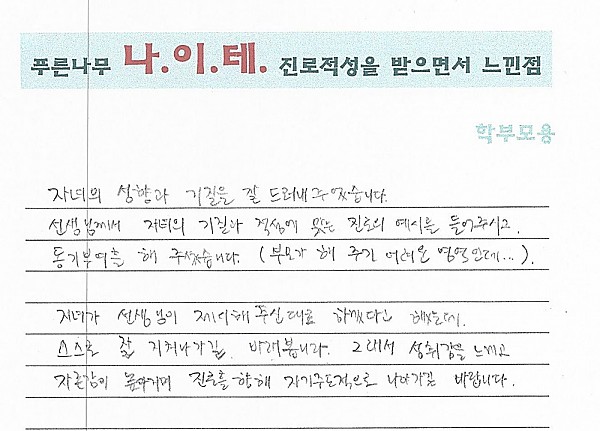 푸른나무 나.이.테. 진로적성을 받으면서 느낀점
학부모용
자녀의 성향과 기질을 잘 드러내주었습니다.
선생님께서 자녀의 기질과 적성에 맞는 진로의 예시를 들어주시고,
동기부여를 해 주셨습니다. (부모가 해 주기 어려운 영역인데...).
자녀가 선생님이 제시해주신대로 하겠다고 했는데,
스스로 잘 지켜나가길 바래봅니다. 그래서 성취감을 느끼고
자존감이 높아지며 진로를 향해 자기주도적으로 나아가길 바랍니다.